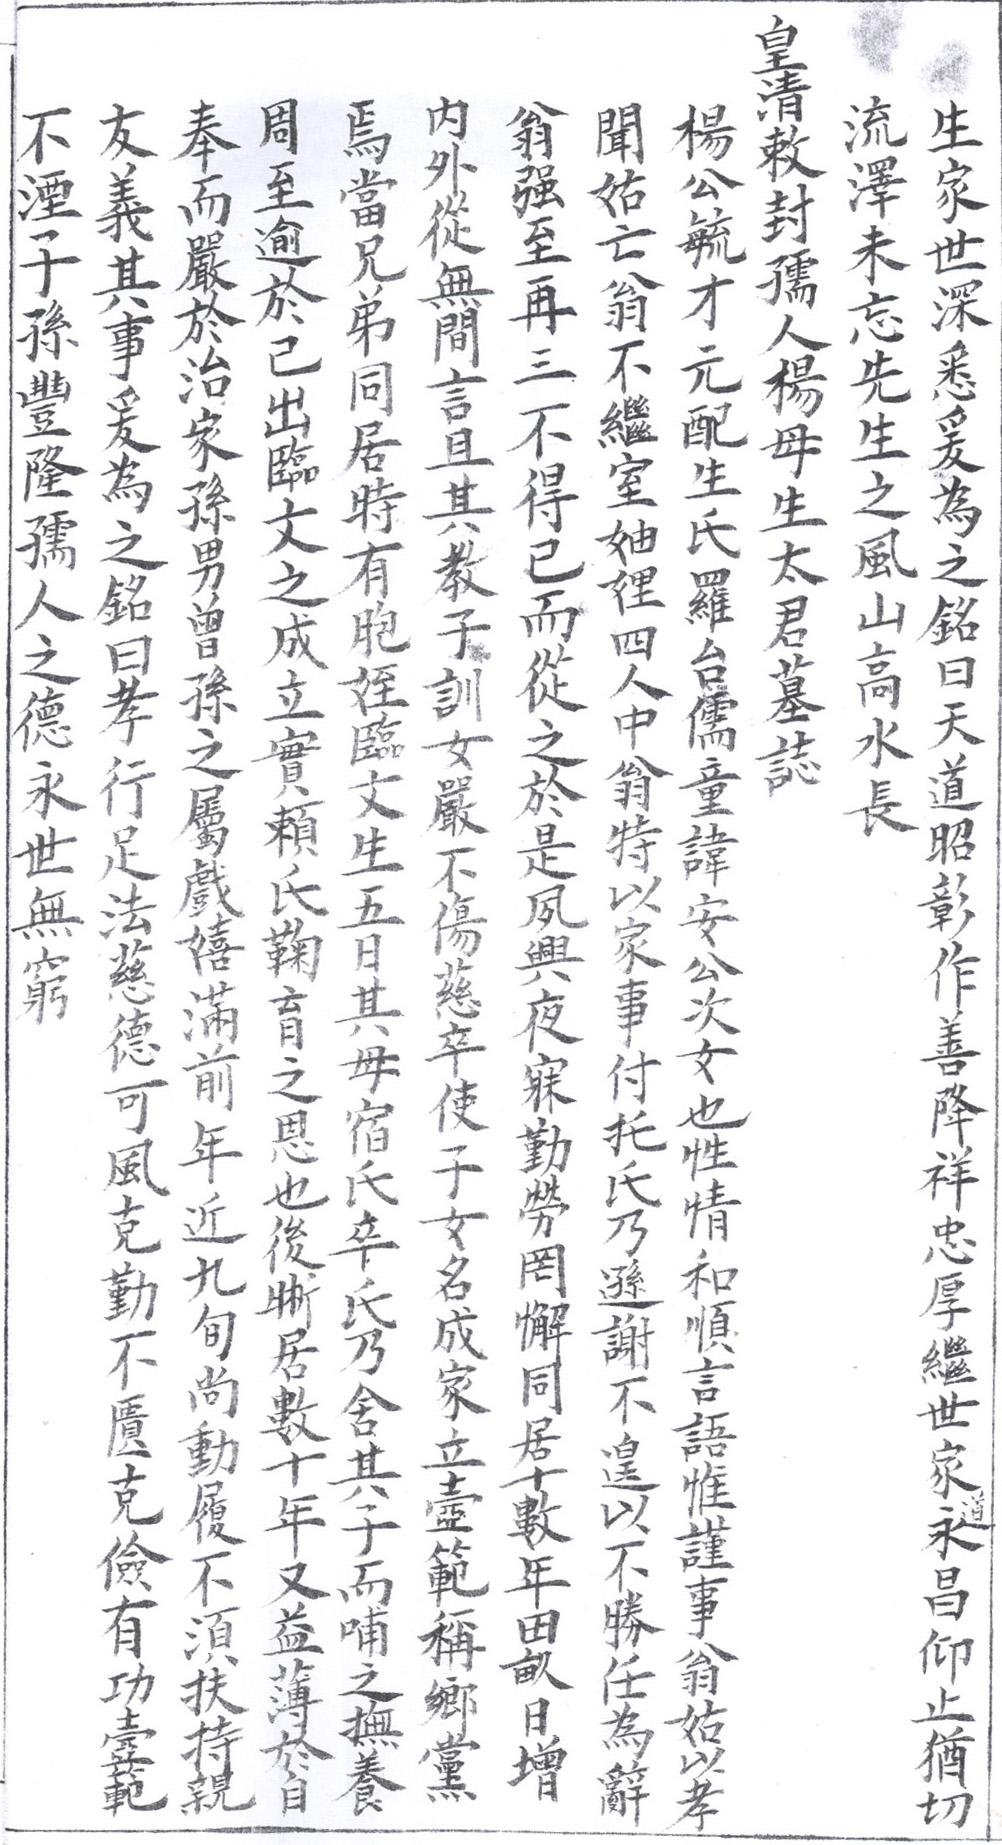 生家世深悉爰為之銘曰天道昭彰作善降祥忠厚繼世家道永昌仰止猶切
流澤未忘先生之風山高水長
皇清敕封孺人楊母生太君墓誌
楊公毓才元配生氏羅台儒童諱安公次女也性情和順言語惟謹事翁姑以孝
聞姑亡翁不繼室妯娌四人中翁特以家事付托氏乃遜謝不遑以不勝任為辭
翁强至再三不得已而從之於是夙興夜寐勤勞罔懈同居十數年田畝日增
內外從無間言且其教子訓女嚴不傷慈卒使子女名成家立壼範稱鄉黨
焉當兄弟同居時有胞姪臨文生五日其母宿氏卒氏乃舍其子而哺之撫養
周至逾於已出臨文之成立實賴氏鞠育之恩也後晰居數十年又益薄於自
奉而嚴於治家孫男曾孫之屬戲嬉滿前年近九旬尚動履不須扶持親
友義其事爰為之銘曰孝行足法慈德可風克勤不匱克儉有功壼範
不湮子孫豐隆孺人之德永世無窮